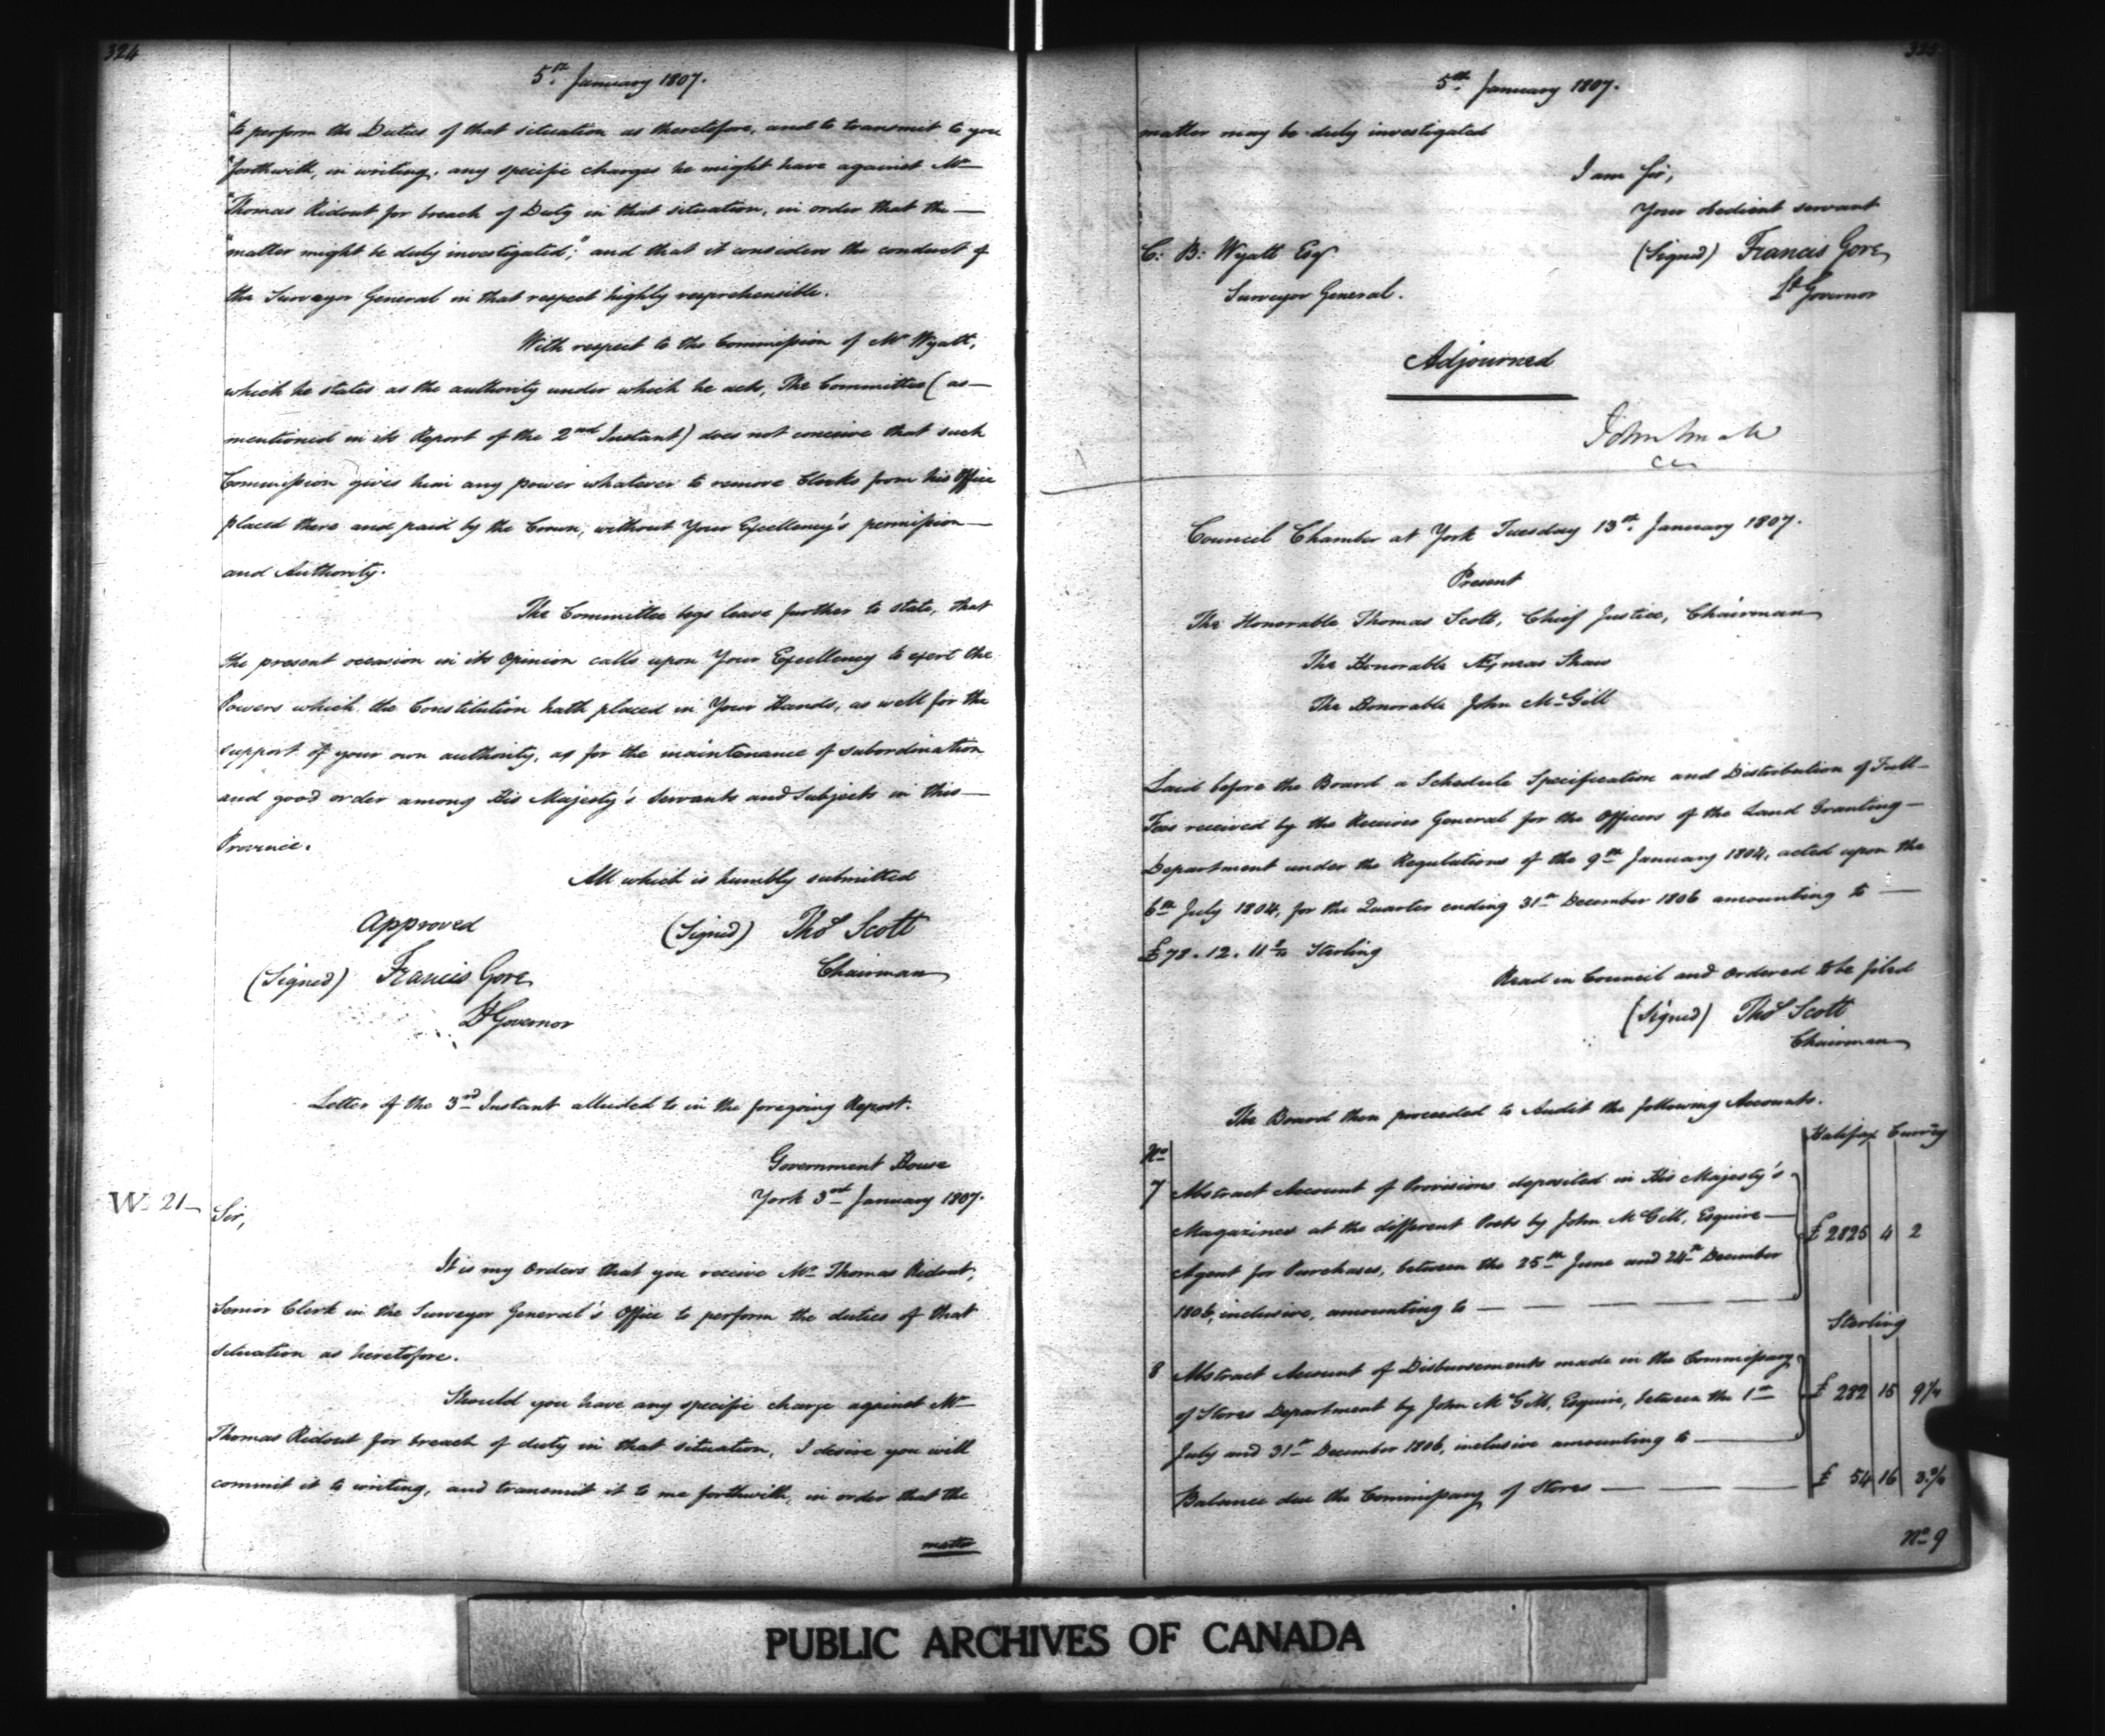 324
5th January 1807.
"to perform the Duties of that situation as theretofore, and to transmit to you
"forthwith, in writing, any specific charges he might have against Mr
"Thomas Ridout for breach of Duty in that situation, in order that the
"matter might be duly investigated;" and that it considers the conduct of
the Surveyor General in that respect highly reprehensible.
With respect to the Commission of Mr Wyatt,
which he states as the authority under which he acts, The Committee (as
mentioned in its Report of the 2nd Instant) does not conceive that such
Commission gives him any power whatever to remove Clerks from his Office
placed there and paid by the Crown, without Your Excellency's permission
and Authority.
The Committee begs leave further to state, that
the present occasion in its Opinion calls upon Your Excellency to exert the
Powers which the Constitution hath placed in Your Hands, as well for the
support of your own authority, as for the maintenance of subordination
and good order among His Majesty's Servants and Subjects in this
Province.
All which is humbly submitted
Approved
(Signed) Thos Scott
Chairman
(Signed) Francis Gore
Lt Governor
Letter of the 3rd Instant alluded to in the foregoing Report.
Government House
York 3rd January 1807.
W. 21
Sir,
It is my Orders that you receive Mr Thomas Ridout,
Senior Clerk in the Surveyor General's Office to perform the duties of that
situation as heretofore.
Should you have any specific charge against Mr
Thomas Ridout for breach of duty in that situation, I desire you will
commit it to writing, and transmit it to me forthwith, in order that the
matter
325
5th January 1807.
matter may be duly investigated
I am Sir,
Your obedient servant
(Signed) Francis Gore
Lt Governor
C: B: Wyatt Esqr
Surveyor General.
Adjourned
John Small
CC
Council Chamber at York Tuesday 13th January 1807.
Present
The Honorable Thomas Scott, Chief Justice, Chairman
The Honorable Æneas Shaw
The Honorable John McGill
Laid before the Board a Schedule Specification and Distribution of Full
Fees received by the Receiver General for the Officers of the Land Granting
Department under the Regulations of the 9th January 1804, acted upon the
6th July 1804, for the Quarter ending 31st December 1806 amounting to
£78.12.11 Sterling
Read in Council and Ordered to be filed
(Signed) Thos Scott
Chairman
The Board then proceeded to Audit the following Accounts.
No
Halifax Currcy
7 Abstract Account of Provisions deposited in His Majesty's
Magazines at the different Posts by John McGill, Esquire
Agent for Purchases, between the 25th June and 24th December
1806, inclusive, amounting to £2825 4 2
Sterling
8 Abstract Account of Disbursements made in the Commissary
of Stores Department by John McGill, Esquire, between the 1st
July and 31st December 1806, inclusive amounting to £282 15 9¼
Balance due the Commissary of Stores £54 16 3¾
No 9
PUBLIC ARCHIVES OF CANADA